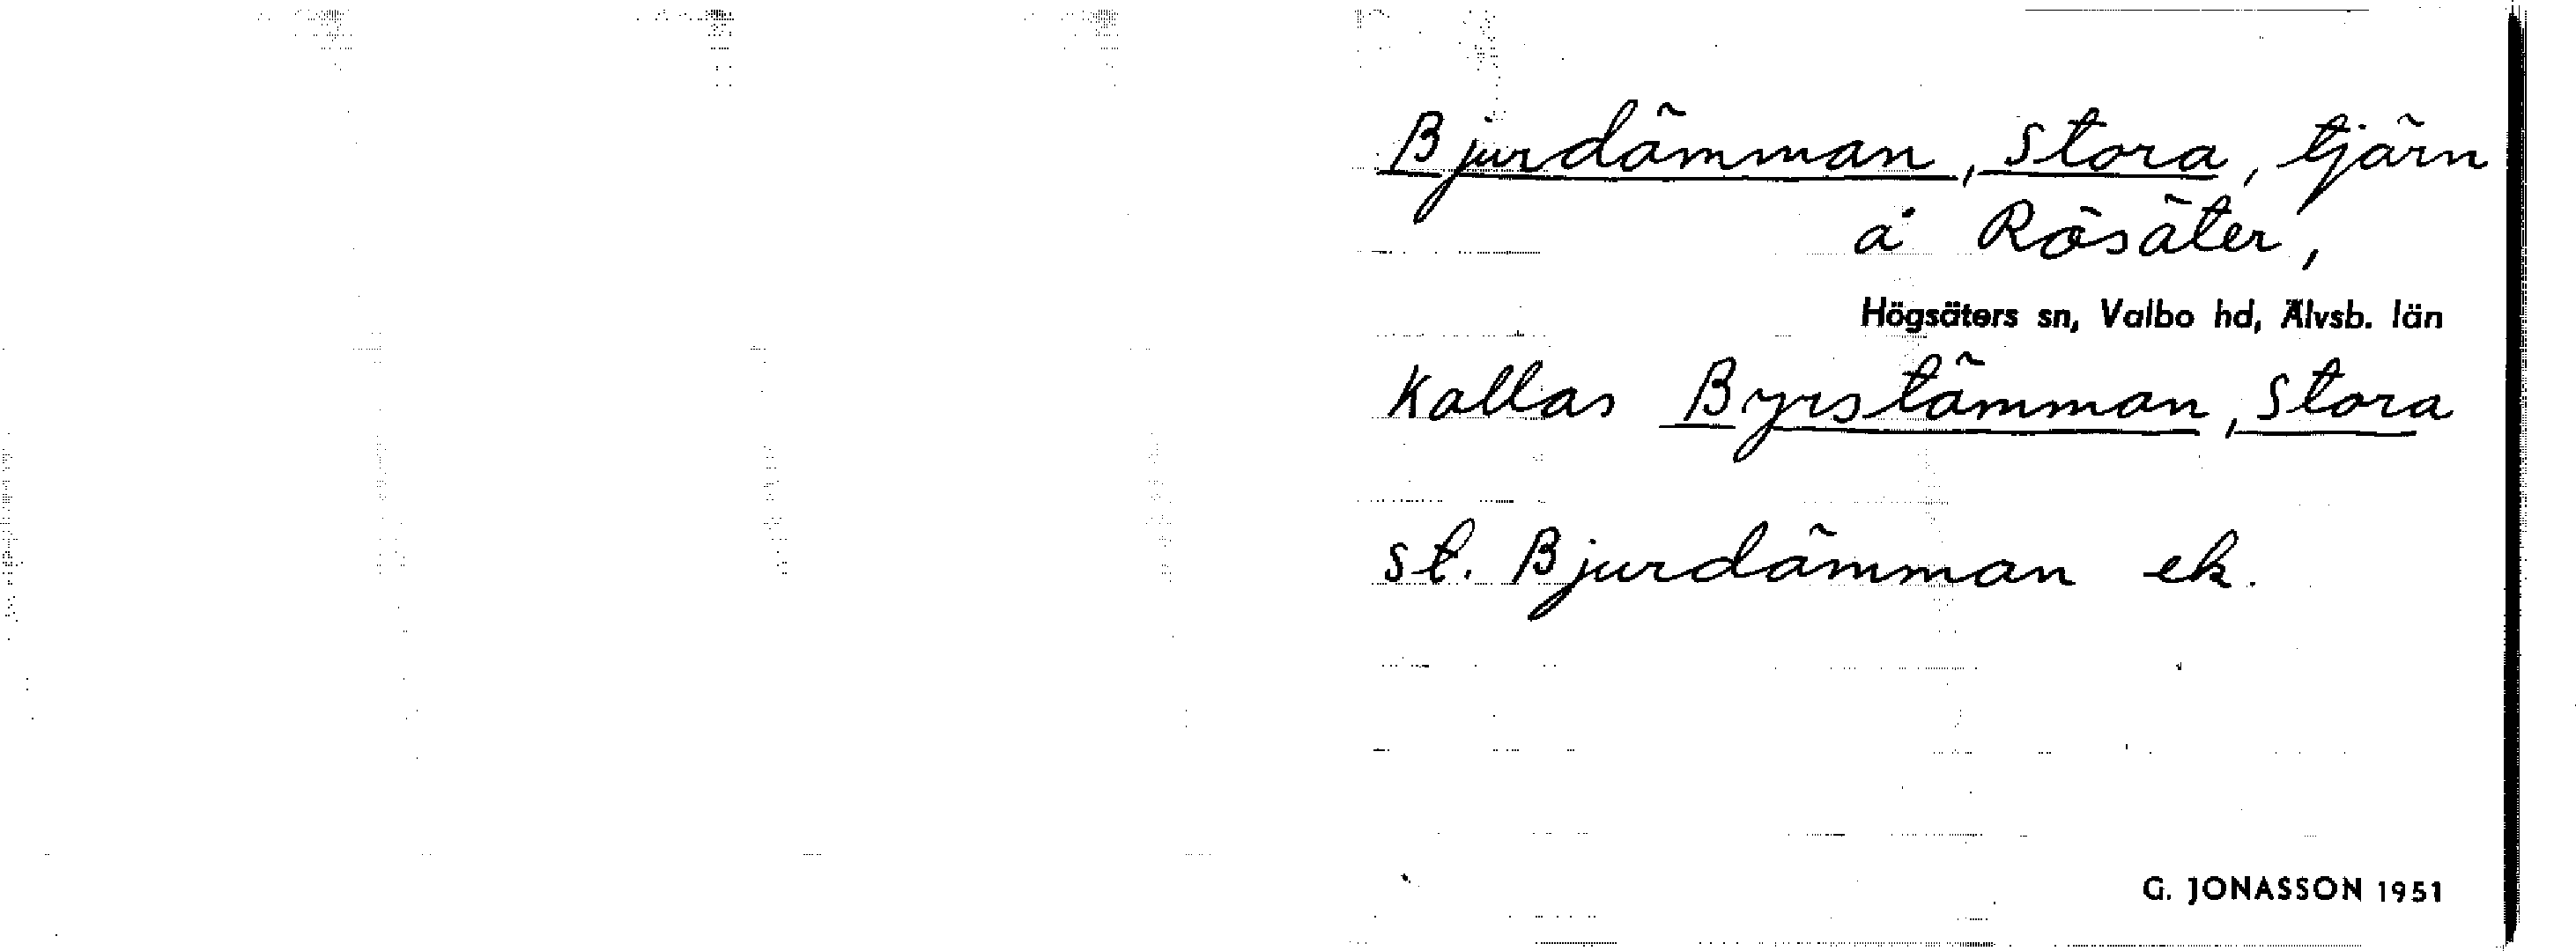 Bjurdämman, Stora, tjärn
å Rösäter,
Högsäters sn, Valbo hd, Älvsb. län
Kallas Byrstämman, Stora
St. Bjurdämman ek.
G. JONASSON 1951